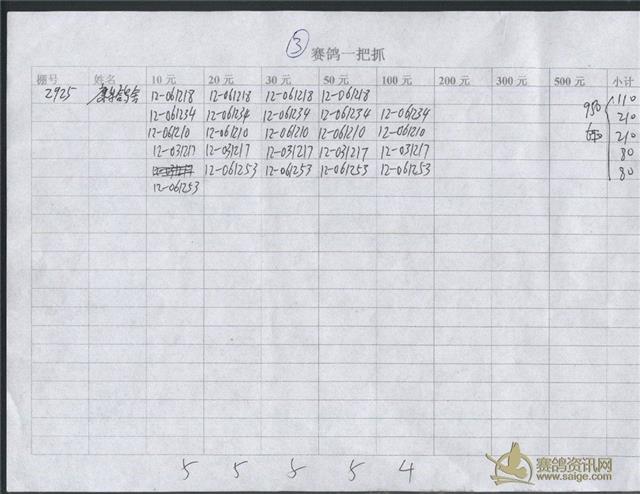 ③
赛鸽一把抓
棚号 姓名 10 元 20 元 30 元 50 元 100 元 200 元 300 元 500 元 小计
2925 12-061218 12-061218 12-061218 12-061218 110
12-061234 12-061234 12-061234 12-061234 12-061234 950 210
12-061210 12-061210 12-061210 12-061210 12-061210 210
12-031217 12-031217 12-031217 12-031217 12-031217 80
12-061253 12-061253 12-061253 12-061253 80
12-061253
5 5 5 5 4
赛鸽资讯网
www.saige.com